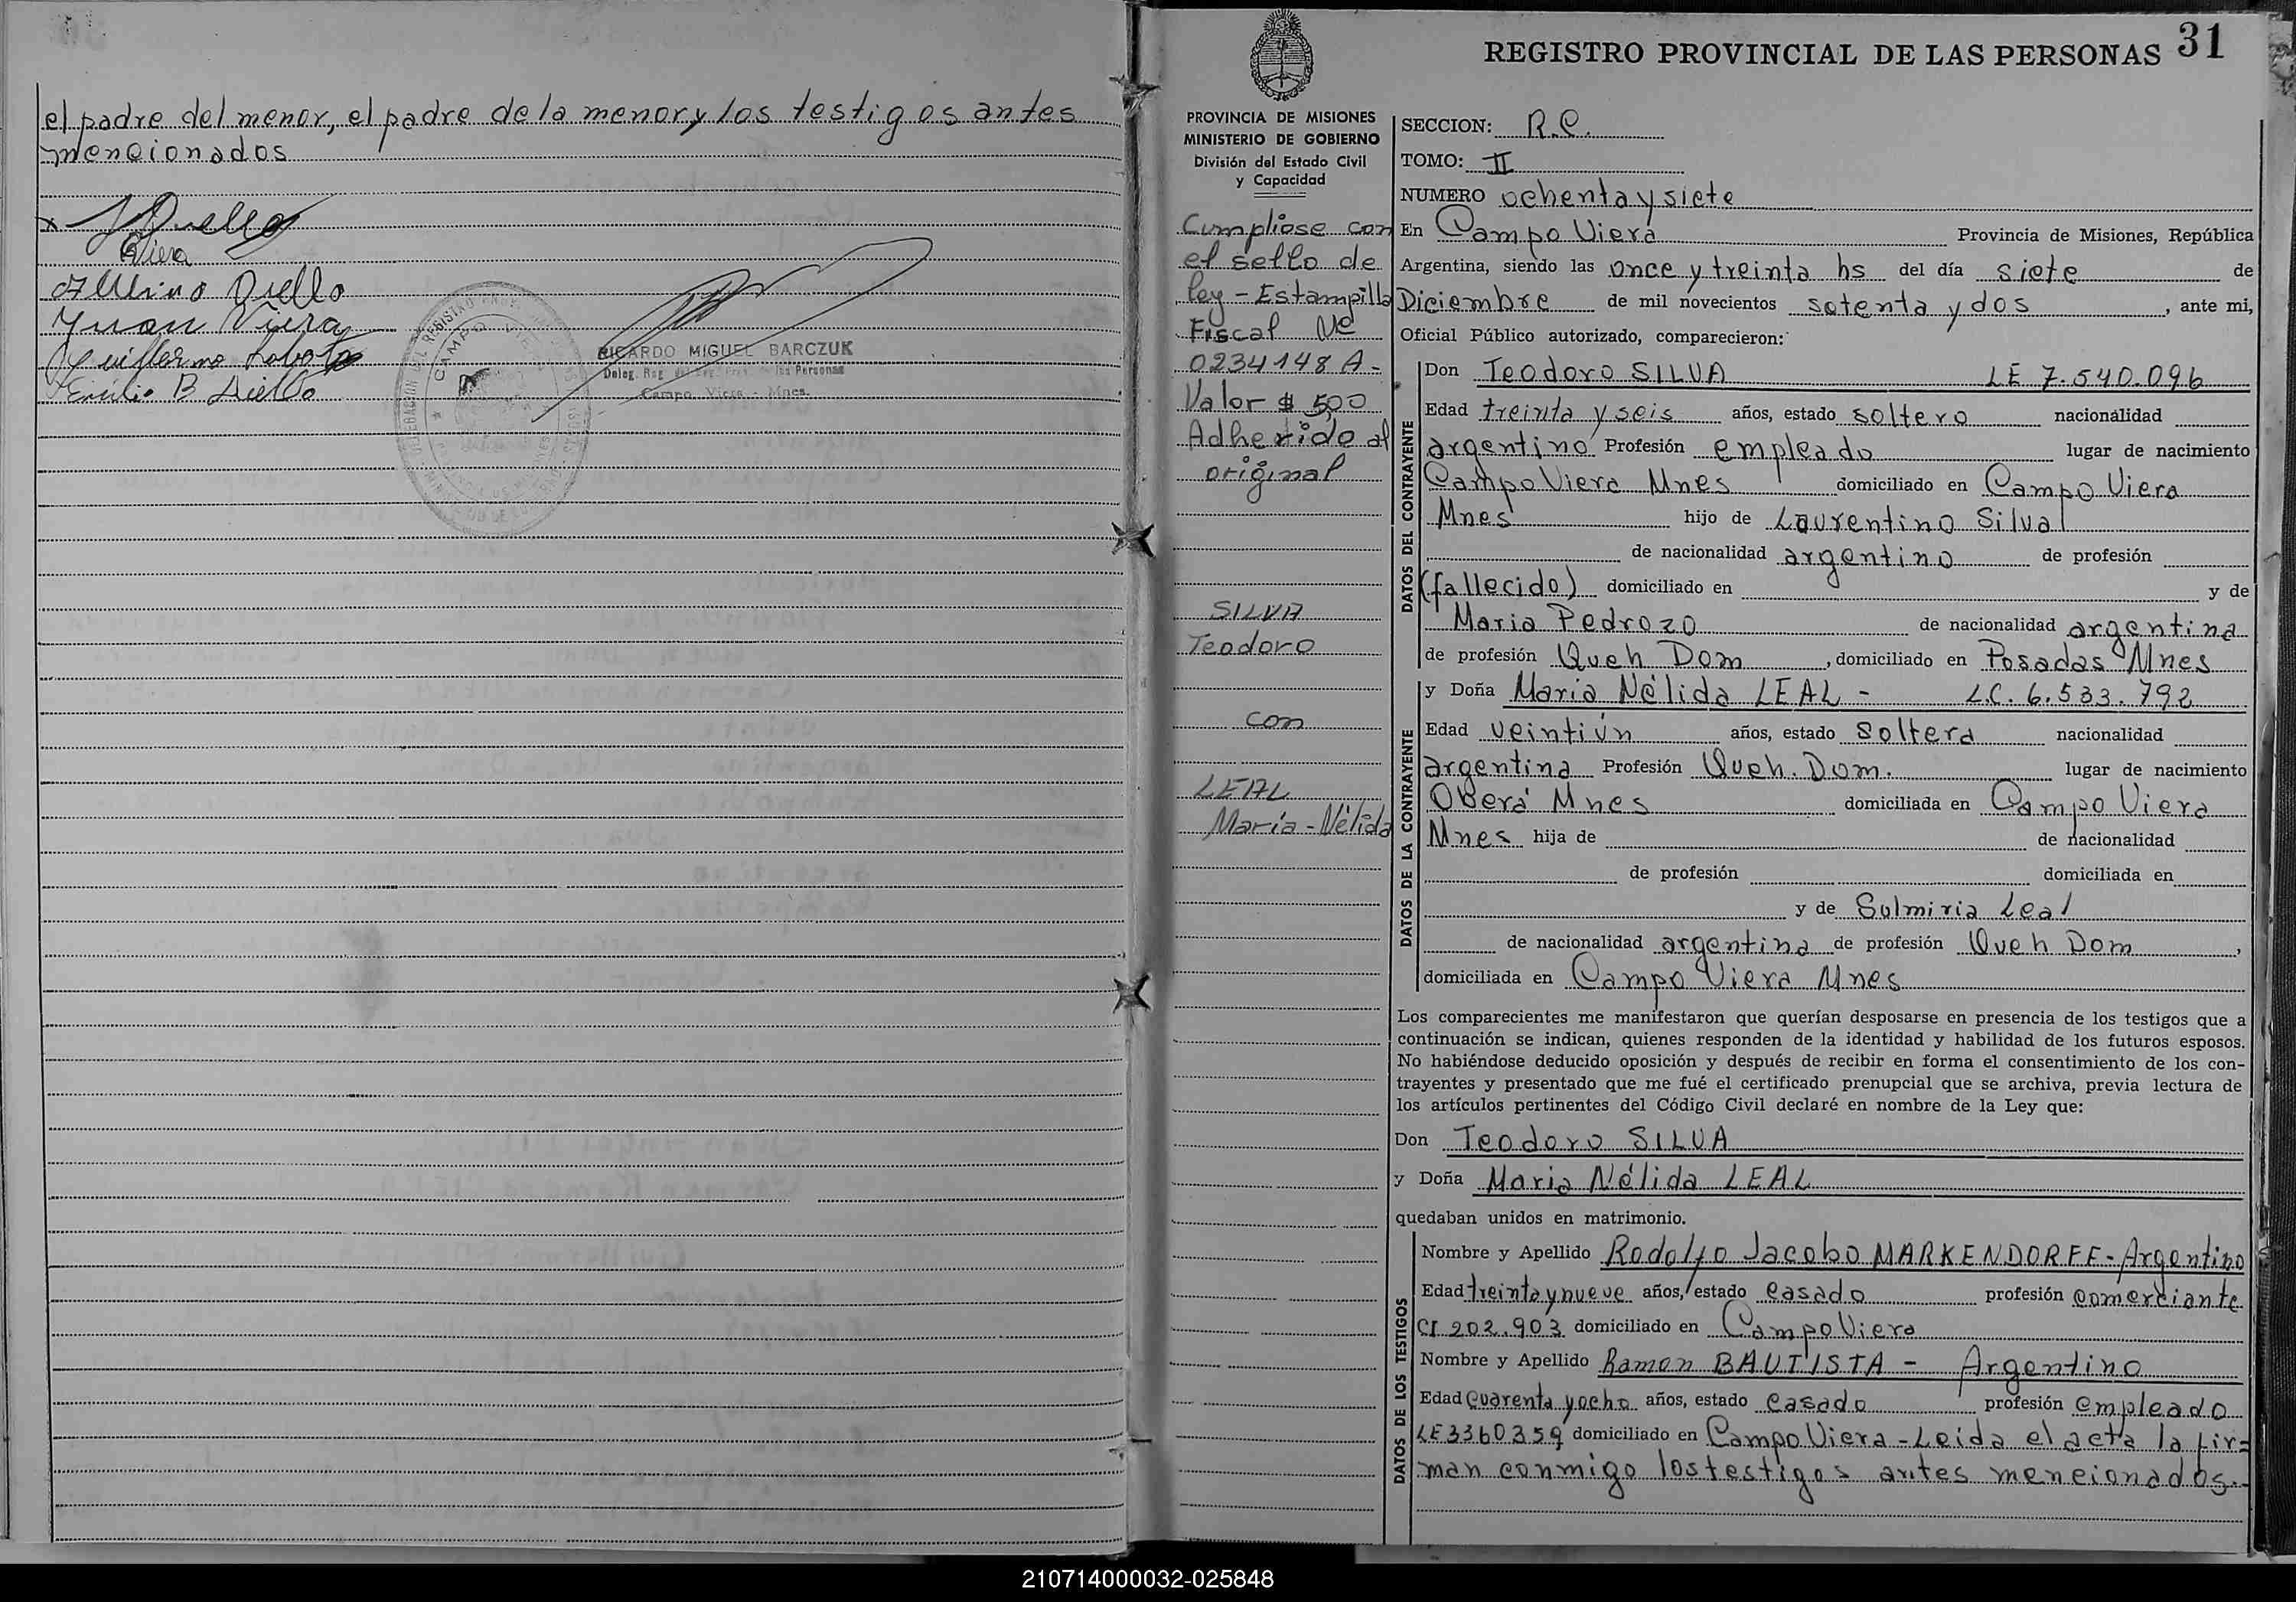 el padre del menor, el padre de la menor y los testigos antes
mencionados
Viera
Juan Viera
RICARDO MIGUEL BARCZUK
Campo Viera - Mnes.
REGISTRO PROVINCIAL DE LAS PERSONAS 31
PROVINCIA DE MISIONES
MINISTERIO DE GOBIERNO
División del Estado Civil
y Capacidad
Cumpliose con
el sello de
ley - Estampilla
Fiscal Nº
0234148 A -
Valor $ 5,00
Adherido al
original
SILVA
Teodoro
con
LEAL
María - Nélida
SECCION: R.C.
TOMO: II
NUMERO ochenta y siete
En Campo Viera Provincia de Misiones, República
Argentina, siendo las once y treinta hs del día siete de
Diciembre de mil novecientos setenta y dos, ante mi,
Oficial Público autorizado, comparecieron:
DATOS DEL CONTRAYENTE
Don Teodoro SILVA LE 7.540.096
Edad treinta y seis años, estado soltero nacionalidad
argentino Profesión empleado lugar de nacimiento
Campo Viera Mnes domiciliado en Campo Viera
Mnes hijo de Laurentino Silva
de nacionalidad argentino de profesión
(fallecido) domiciliado en y de
Maria Pedrozo de nacionalidad argentina
de profesión Queh Dom, domiciliado en Posadas Mnes
DATOS DE LA CONTRAYENTE
y Doña Maria Nélida LEAL - L.C. 6.533.792
Edad veintiún años, estado soltera nacionalidad
argentina Profesión Queh. Dom. lugar de nacimiento
Oberá Mnes domiciliada en Campo Viera
Mnes hija de de nacionalidad
de profesión domiciliada en
y de Sulmiria Leal
de nacionalidad argentina de profesión Queh Dom,
domiciliada en Campo Viera Mnes
Los comparecientes me manifestaron que querían desposarse en presencia de los testigos que a
continuación se indican, quienes responden de la identidad y habilidad de los futuros esposos.
No habiéndose deducido oposición y después de recibir en forma el consentimiento de los con-
trayentes y presentado que me fué el certificado prenupcial que se archiva, previa lectura de
los artículos pertinentes del Código Civil declaré en nombre de la Ley que:
Don Teodoro SILVA
y Doña Maria Nélida LEAL
quedaban unidos en matrimonio.
DATOS DE LOS TESTIGOS
Nombre y Apellido Rodolfo Jacobo MARKENDORFF - Argentino
Edad treinta y nueve años, estado casado profesión comerciante
CI 202.903 domiciliado en Campo Viera
Nombre y Apellido Ramon BAUTISTA - Argentino
Edad cuarenta y ocho años, estado casado profesión empleado
LE 3360359 domiciliado en Campo Viera - Leida el acta la fir=
man conmigo los testigos antes mencionados.-
210714000032-025848